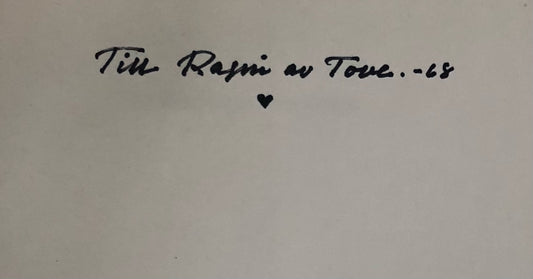 Till Ragni av Tove. -68
♥